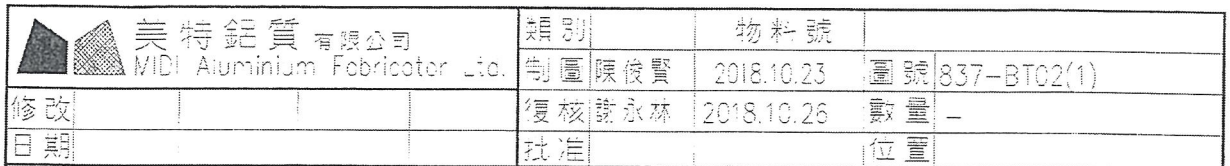 美特鋁質有限公司
MIDI Aluminium Fabricator Ltd.
類別 物料號
制圖 陳俊賢 2018.10.23 圖號 837-BT02(1)
修改 復核 謝永林 2018.10.26 數量 –
日期 批准 位置